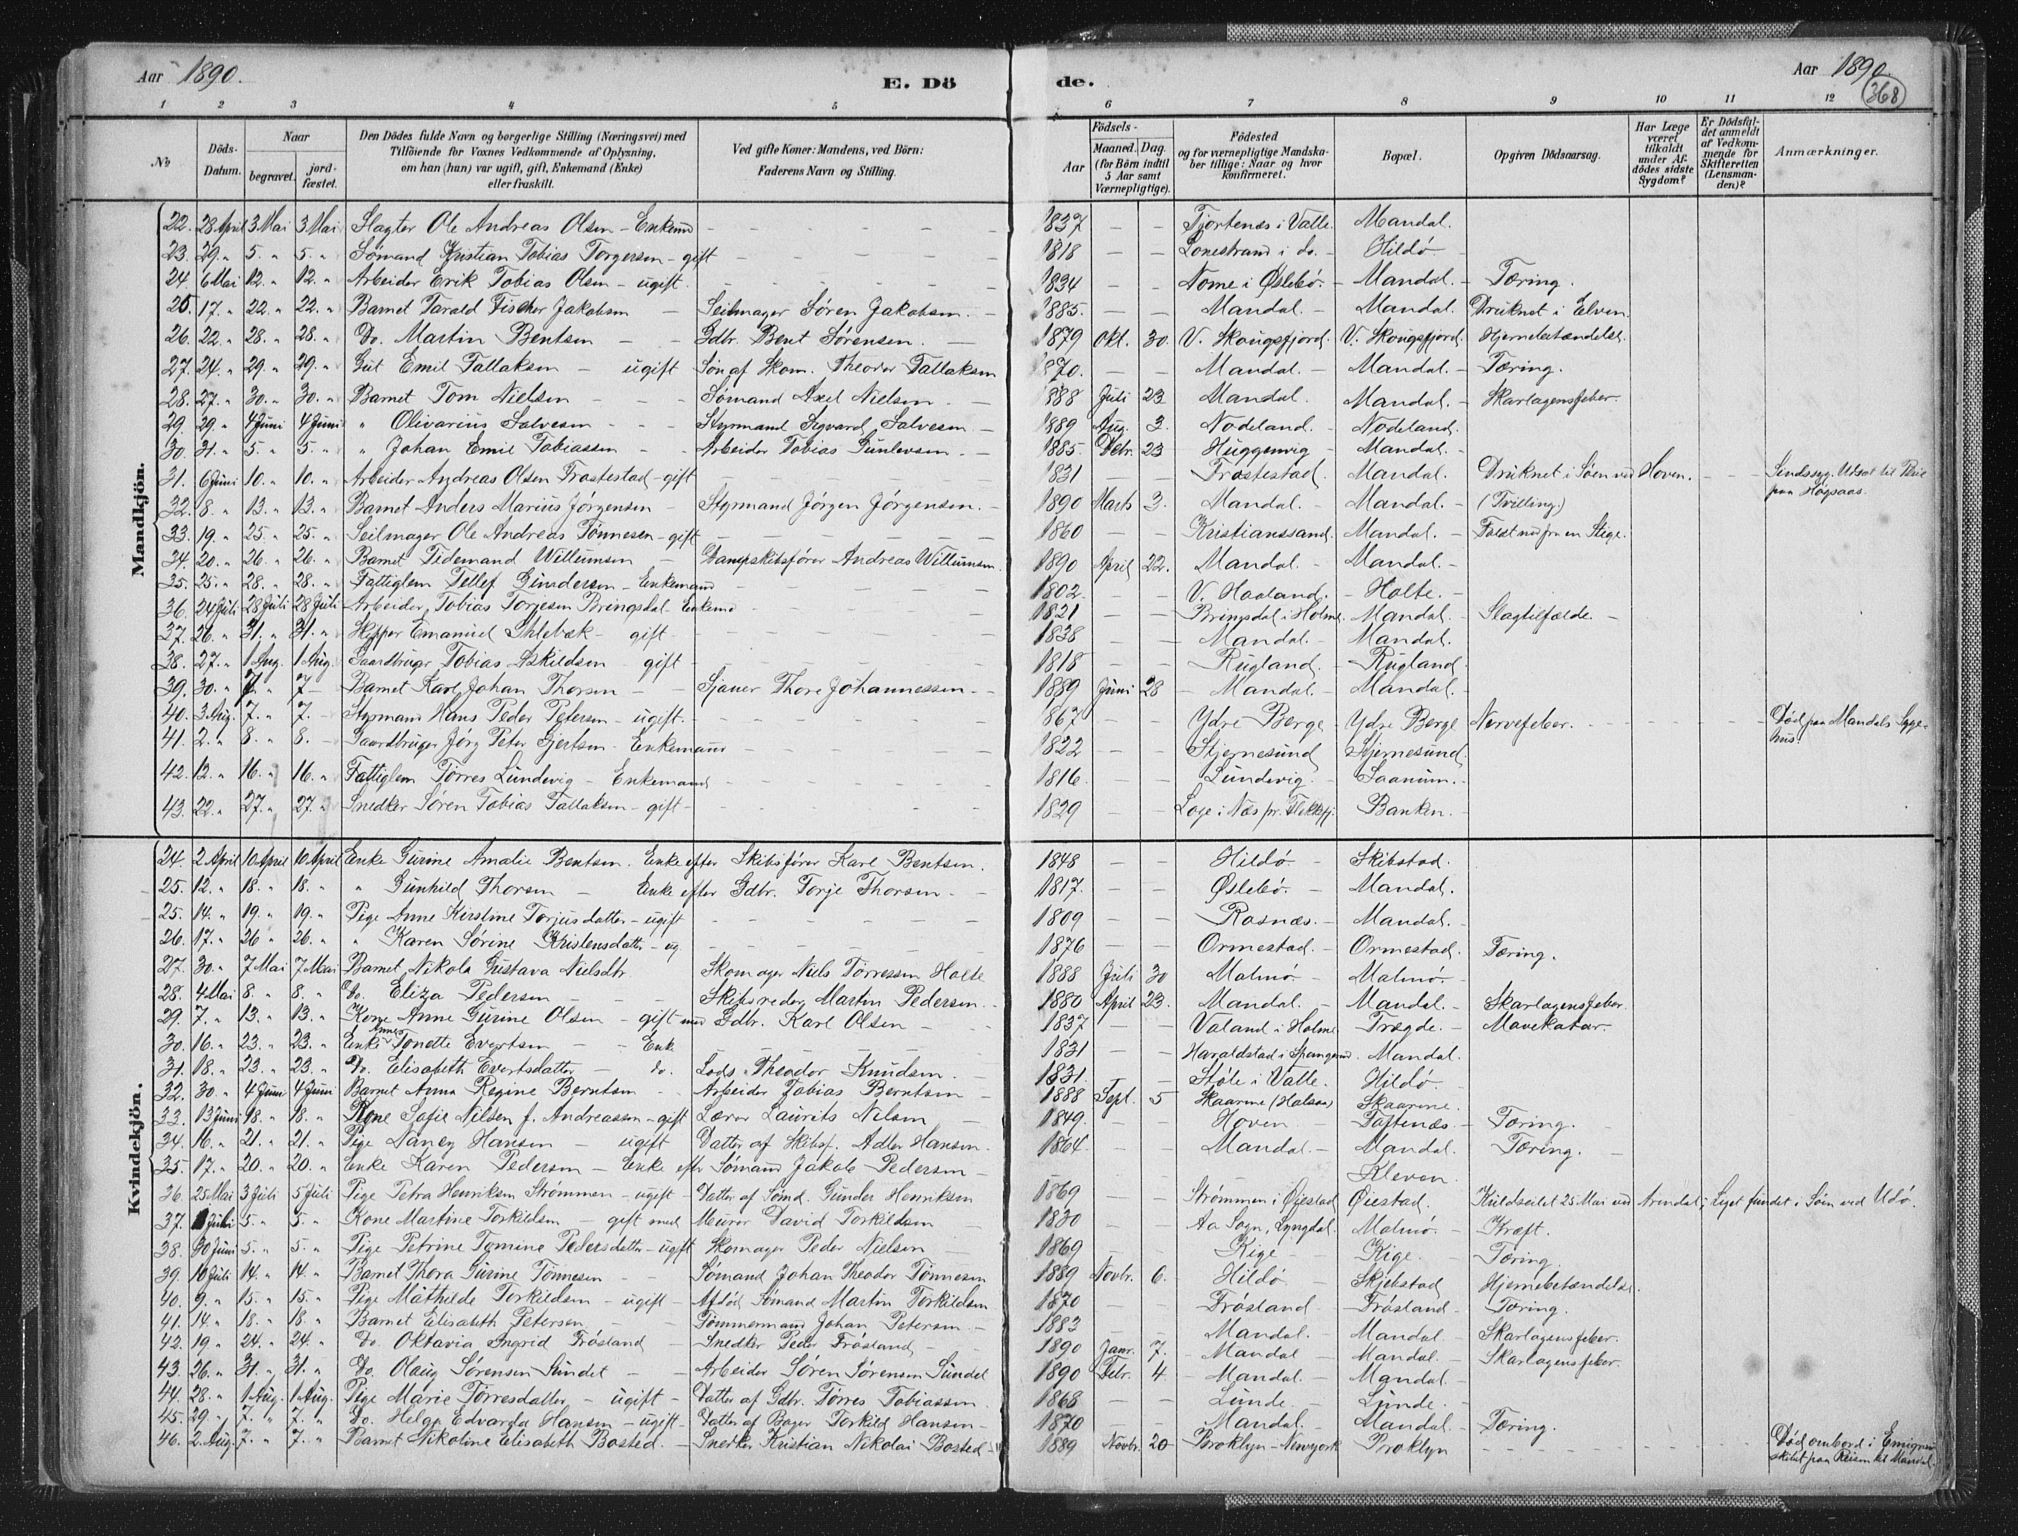 Aar 1890.
E. Dö
de.
Aar 1890.
368
1 2 3 4 5 6 7 8 9 10 11 12
No
Döds-Datum.
Naar
begravet.
jord-fæstet.
Den Dödes fulde Navn og borgerlige Stilling (Næringsvei) med
Tilföiende for Voxnes Vedkommende af Oplysning,
om han (hun) var ugift, gift, Enkemand (Enke)
eller fraskilt.
Ved gifte Koner: Mandens, ved Börn:
Faderens Navn og Stilling.
Födsels-
Aar
Maaned. Dag.
(for Börn indtil
5 Aar samt
Værnepligtige).
Födested
og for værnepligtige Mandska-
ber tillige: Naar og hvor
konfirmeret.
Bopæl.
Opgiven Dödsaarsag.
Har Læge
været
tilkaldt
under Af-
dödes sidste
Sygdom?
Er Dödsfal-
det anmeldt
af Vedkom-
mende for
Skifteretten
(Lensman-
den)?
Anmærkninger.
Mandkjön.
22. 28 April 3 Mai 3 Mai Slagter Ole Andreas Olsen - Enkemd 1837 Tjortenæs i Valle. Mandal.
23. 29. " 5. " 5. " Sømand Kristian Tobias Torgersen - gift 1818 Lonestrand i do. Hildø
24. 6 Mai 12. " 12. " Arbeider Erik Tobias Olsen - ugift. 1834 Nome i Øslebø. Mandal. Tæring.
25. 17. " 22. " 22. " Barnet Tarald Fischer Jakobsen Seilmager Søren Jakobsen. 1885. Mandal. Mandal. Druknet i Elven.
26. 22. " 28. " 28. " Do. Martin Bentsen Gdbr. Bent Sørensen. 1879 Okt. 30. V. Skougsfjord. V. Skougsfjord. Hjernebetændelse.
27. 24. " 29. " 29. " Gut Emil Tallaksen - ugift Søn af Skom. Theodor Tallaksen 1870. Mandal. Mandal. Tæring.
28. 27. " 30. " 30. " Barnet Tom Nielsen Sømand Axel Nielsen 1888 Juli 23 Mandal. Mandal. Skarlagensfeber.
29. 29. " 4 Juni 4 Juni " Olivarius Salvesen Styrmand Sigvard Salvesen 1889 Aug. 3. Nodeland. Nodeland.
30. 31. " 5. " 5. " " Johan Emil Tobiassen Arbeider Tobias Gunlevsen. 1885. Debr. 23 Huggenvig Mandal.
31. 6 Juni 10. " 10. " Arbeider Andreas Olsen Frøstestad - gift 1831 Frøstestad. Mandal. Druknet i Søen ved Hoven. Sindssyg. Udsat til Pleie
paa Høgsaas.
32. 8. " 13. " 13. " Barnet Anders Marius Jørgensen Styrmand Jørgen Jørgensen. 1890 Marts 3. Mandal. Mandal. (Tvilling.)
33. 19. " 25. " 25. " Seilmager Ole Andreas Tønnesen - gift 1860 Kristianssand. Mandal. Faldt ned fra en Stige.
34. 20. " 26. " 26. " Barnet Tidemand Willumsen Dampskibsfører Andreas Willumsen. 1890 April 22. Mandal. Mandal.
35. 25. " 28. " 28. " Fattiglem Tellef Gundersen - Enkemand 1802. V. Haaland. Holte.
36. 24 Juli 28 Juli 28 Juli Arbeider Tobias Torjesen Bringsdal Enkemd 1821 Bringsdal i Holme. Mandal. Slagtilfælde.
37. 26. " 31. " 31. " Skipper Emanuel Ihlebæk - gift 1838 Mandal. Mandal.
38. 27. " 1 Aug. 1 Aug. Gaardbruger Tobias Eskildsen - gift 1818 Rugland. Rugland.
39. 30. " 7. 7 Barnet Karl Johan Thorsen Sjauer Thore Johannessen 1889 Juni 28 Mandal. Mandal.
40. 3 Aug. 7. " 7. Styrmand Hans Peder Petersen - ugift. 1867 Ydre Berge Ydre Berge Nervefeber. Død paa Mandals Syge-
hus.
41. 2. " 8. " 8. Gaardbruger Jørg Peter Gjertsen - Enkemand 1822 Stjernesund Stjernesund
42. 12. " 16. " 16. " Fattiglem Tørres Lundevig - Enkemand 1816. Lundevig. Saanum.
43. 22. " 27. " 27. " Snedker Søren Tobias Tallaksen - gift 1829 Loge i Næs pr. Flekkefj. Banken.
Kvindekjön.
24. 2 April 10 April 10 April Enke Gurine Amalie Bentsen. Enke efter Skibsfører Karl Bentsen. 1848 Hildø Skibstad.
25. 12. " 18. " 18. " " Gunhild Thorsen Enke efter Gdbr. Torje Thorsen. 1817. Øslebø. Mandal.
25. 14. " 19. " 19. " Pige Anne Kirstine Torjusdatter - ugift 1809 Rosnæs. Mandal.
26. 17. " 26 " 26. " " Karen Sørine Kristensdatter - ug 1876 Ormestad. Ormestad. Tæring.
27. 30. " 7 Mai 7 Mai Barnet Nikola Gustava Nielsdtr. Skomager Niels Tørressen Holte 1888 Juli 30 Malmø. Malmø.
28. 4 Mai 8. " 8. " Do. Eliza Pedersen Skibsreder Martin Pedersen. 1880 April 23. Mandal. Mandal. Skarlagensfeber.
29. 7. " 13. " 13. " Kone Anne Gurine Olsen - gift med Gdbr. Karl Olsen 1837 Valand i Holme Trægde. Mavekatar.
30. 16. " 23. " 23. " Enke Anne Tonette Evertsen Enke 1831 Haraldstad i Spangereid. Mandal.
31. 18. " 23. " 23. " Do. Elisabeth Evertsdatter do. Lods. Theodor Knudsen. 1831. Støle i Valle. Hildø
32. 30. " 4 Juni 4 Juni Barnet Anna Regine Berntsen Arbeider Tobias Berntsen 1888 Sept. 5 Skaarene (Halsaa) Skaarene.
33. 13 Juni 18. " 18. " Kone Sofie Nilsen f. Andreassen - gift Lærer Laurits Nilsen 1849. Hoven Toftenæs. Tæring.
34. 16. " 21. " 21. " Pige Nancy Hansen - ugift Datter af Skibsf. Adler Hansen. 1864. Mandal. Mandal. Tæring.
35. 17. " 20. " 20. " Enke Karen Pedersen - Enke efter Sømand Jakob Pedersen Kleven.
36. 25 Mai 3 Juli 5 Juli Pige Petra Henriksen Strømmen - ugift Datter af Sømd. Gunder Henriksen 1869 Strømmen i Øiestad Øiestad. Kuldseilet 25 Mai ved Arendal; Liget fundet i Søen ved Udø.
37. 1 Juli 5. " 5. " Kone Martine Torkildsen - gift med Murer David Torkildsen 1830 Aa Sogn, Lyngdal. Malmø. Kræft.
38. 30 Juni 5. " 5. " Pige Petrine Tomine Pedersdatter - ugift Skomager Peder Nielsen 1869 Kige Kige. Tæring.
39. 10 Juli 14. " 14. " Barnet Thora Gurine Tønnesen Sømand Johan Theodor Tønnesen 1889 Novbr. 6. Hildø Skjebstad Hjernebetændelse.
40. 9. " 15. " 15. " Pige Mathilde Torkildsen - ugift Afdød Sømand Martin Torkildsen 1870 Frøsland Frøsland Tæring.
41. 14. " 18. " 18. " Barnet Elisabeth Petersen Tømmermand Johan Petersen 1883 Mandal. Mandal. Skarlagensfeber.
42. 19 " 24. " 24. " Do. Oktavia Ingrid Frøsland Snedker Peder Frøsland 1890 Janr. 7. Mandal Mandal. Skarlagensfeber.
43. 26. " 31. " 31. " Do. Olaug Sørensen Sundet Arbeider Søren Sørensen Sundet 1890 Febr. 4. Mandal. Mandal.
44. 28. " 1 Aug. 1 Aug. Pige Marie Tørresdatter - ugift Datter af Gdbr. Tørres Tobiassen 1868 Lunde Lunde.
45. 29. " 7. " 7. " Do. Helga Edvarda Hansen - ugift Datter af Bager Torkild Hansen 1870 Mandal. Mandal. Tæring.
46. 2 Aug. 7. " 7. " Barnet Nikoline Elisabeth Bosted. Snedker Kristian Nikolai Bosted 1889 Novbr. 20 Broklyn - Newyork Broklyn Død ombord i Emigran-
skibet paa Reisen til Mandal.